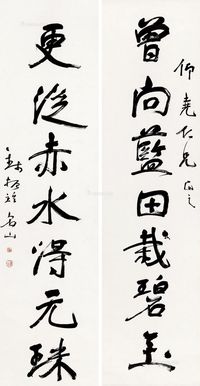 仰堯仁兄正之
曾向藍田栽碧玉
更從赤水得元珠